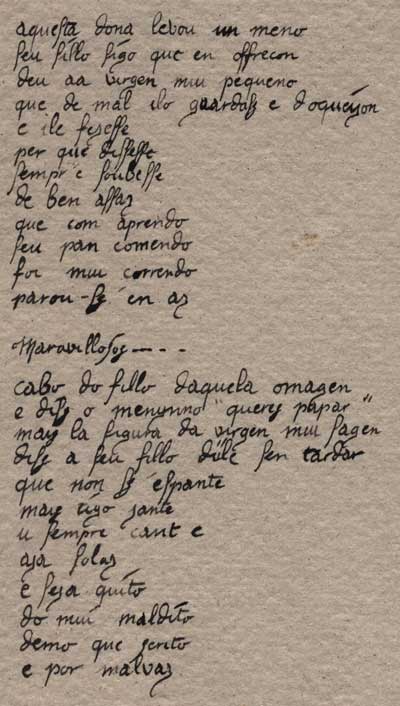 aquesta dona levou un meno
seu fillo sigo que en offrecon
deu aa virgen mui pequeno
que de mal llo guardass e d oqueijon
e lle fezesse
per que dissesse
sempr e soubesse
de ben assaz
que com aprendo
seu pan comendo
foi mui correndo
parou-ss' en az
Maravillosos----
cabo do fillo daquela omagen
e diss o menynno "queres papar"
mays la figura da virgen mui sagen
diss a seu fillo dille sen tardar
que non ss' espante
mays tigo jante
u sempre cant e
aja solaz
e seja quito
do mui maldito
demo que scrito
e por malvaz